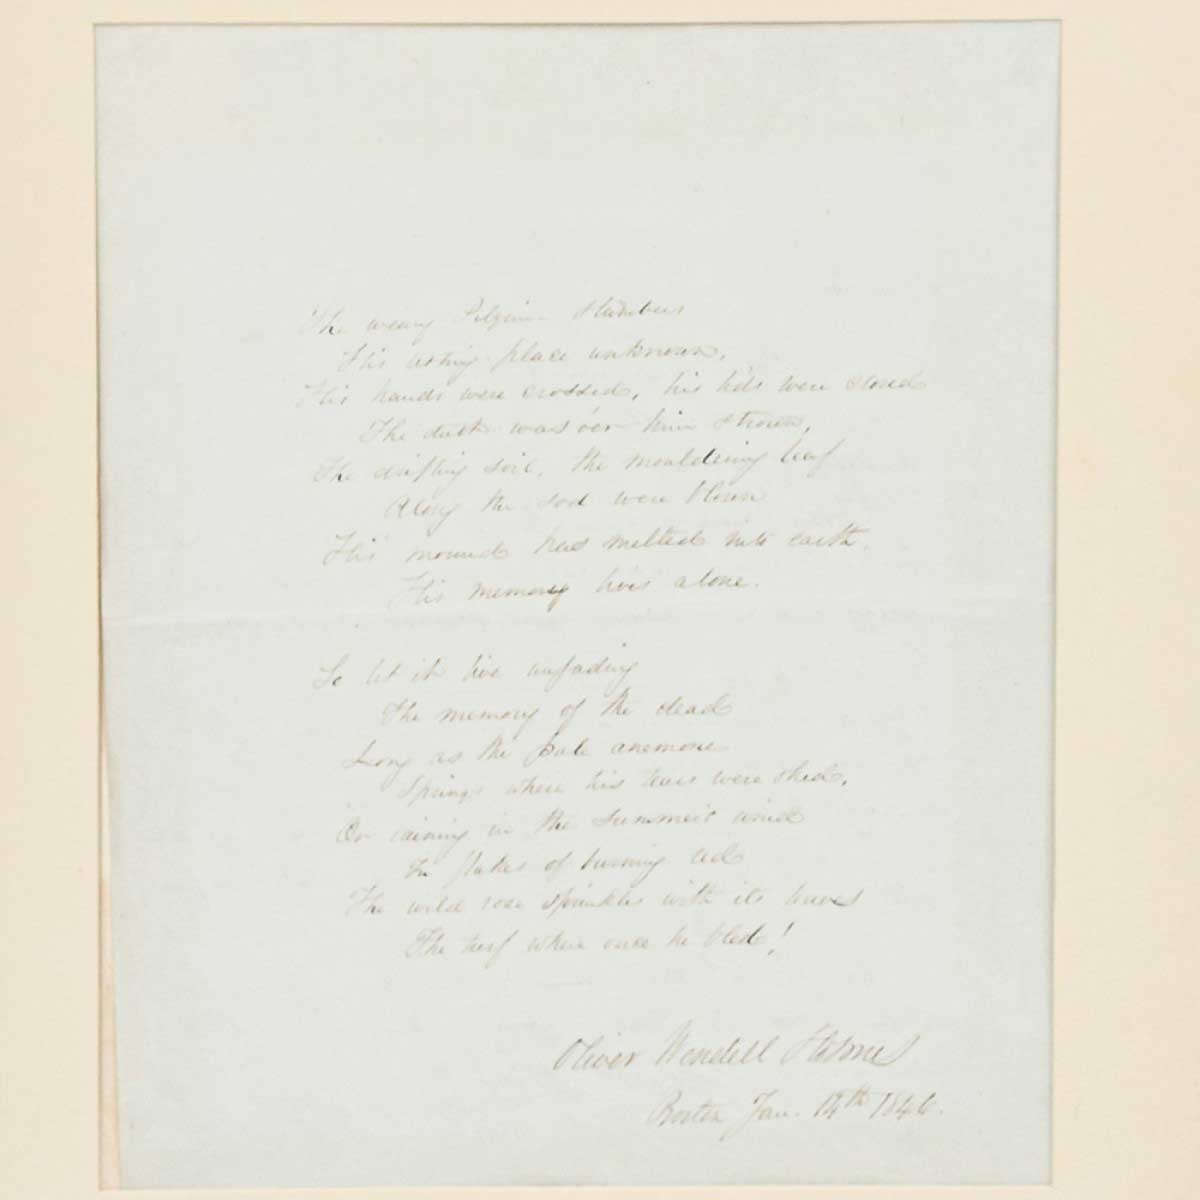 The weary Pilgrim slumbers
His resting place unknown,
His hands were crossed, his lids were closed
The dust was o'er him strown,
The drifting soil, the mouldering leaf
Along the sod were blown
His mound has melted into earth.
His memory lives alone.
So let it live unfading
The memory of the dead
Long as the pale anemone
Springs where his tears were shed,
Or raining in the summer's wind
In flakes of burning red
The wild rose sprinkles with its leaves
The turf where once he bled!
Oliver Wendell Holmes
Boston Jan. 14th 1846.